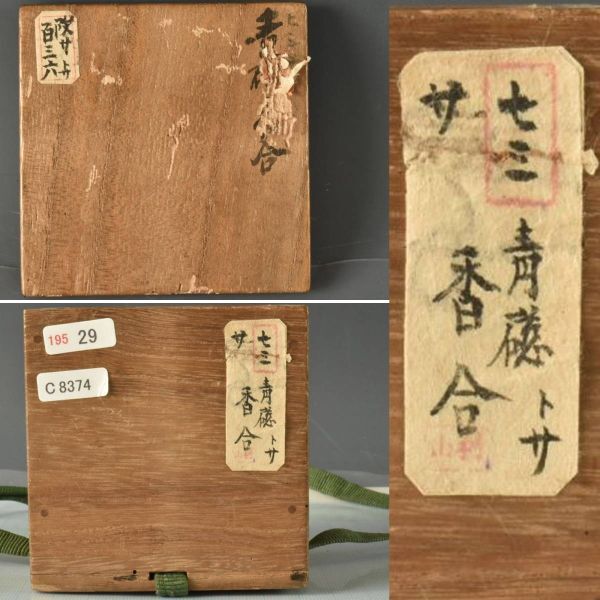 百三六
七三
青磁
香合
195 29
C 8374
七三
サ
青磁 トサ
香合
七三
サ
青磁 トサ
香合